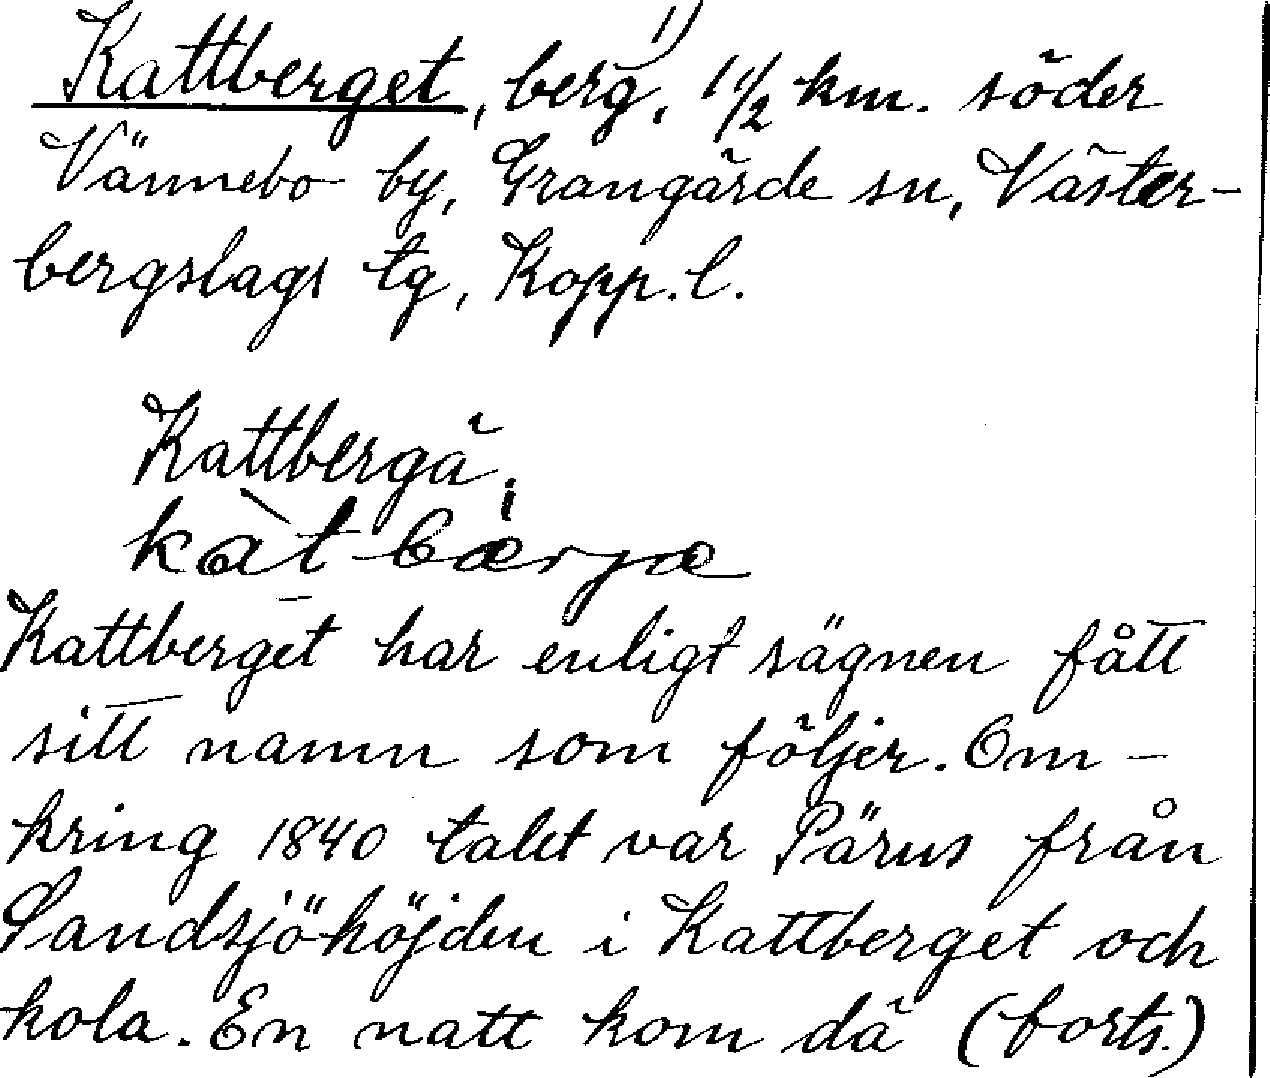 Kattberget, berg,¹⁾ 1 1/2 km. söder
Vännebo by, Grangärde sn, Väster-
bergslags tg, Kopp. l.
Kattbergä.
kàt bærjæ
Kattberget har enligt sägnen fått
sitt namn som följer. Om-
kring 1840 talet var Pärus från
Sandsjöhöjden i Kattberget och
kola. En natt kom då (forts.)